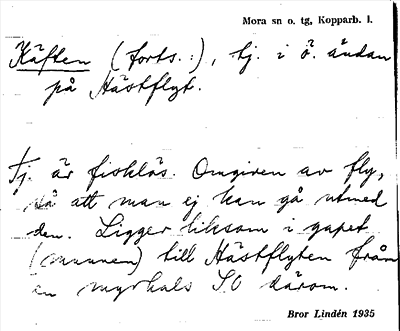 Mora sn o. tg, Kopparb. l.
Käften (forts.:), tj. i ö. ändan
på Hästflyt.
Tj. är fisklös. Omgiven av fly,
så att man ej kan gå utmed
den. Ligger liksom i gapet
(munnen) till Hästflyten från
en myrhals S.O därom.
Bror Lindén 1935